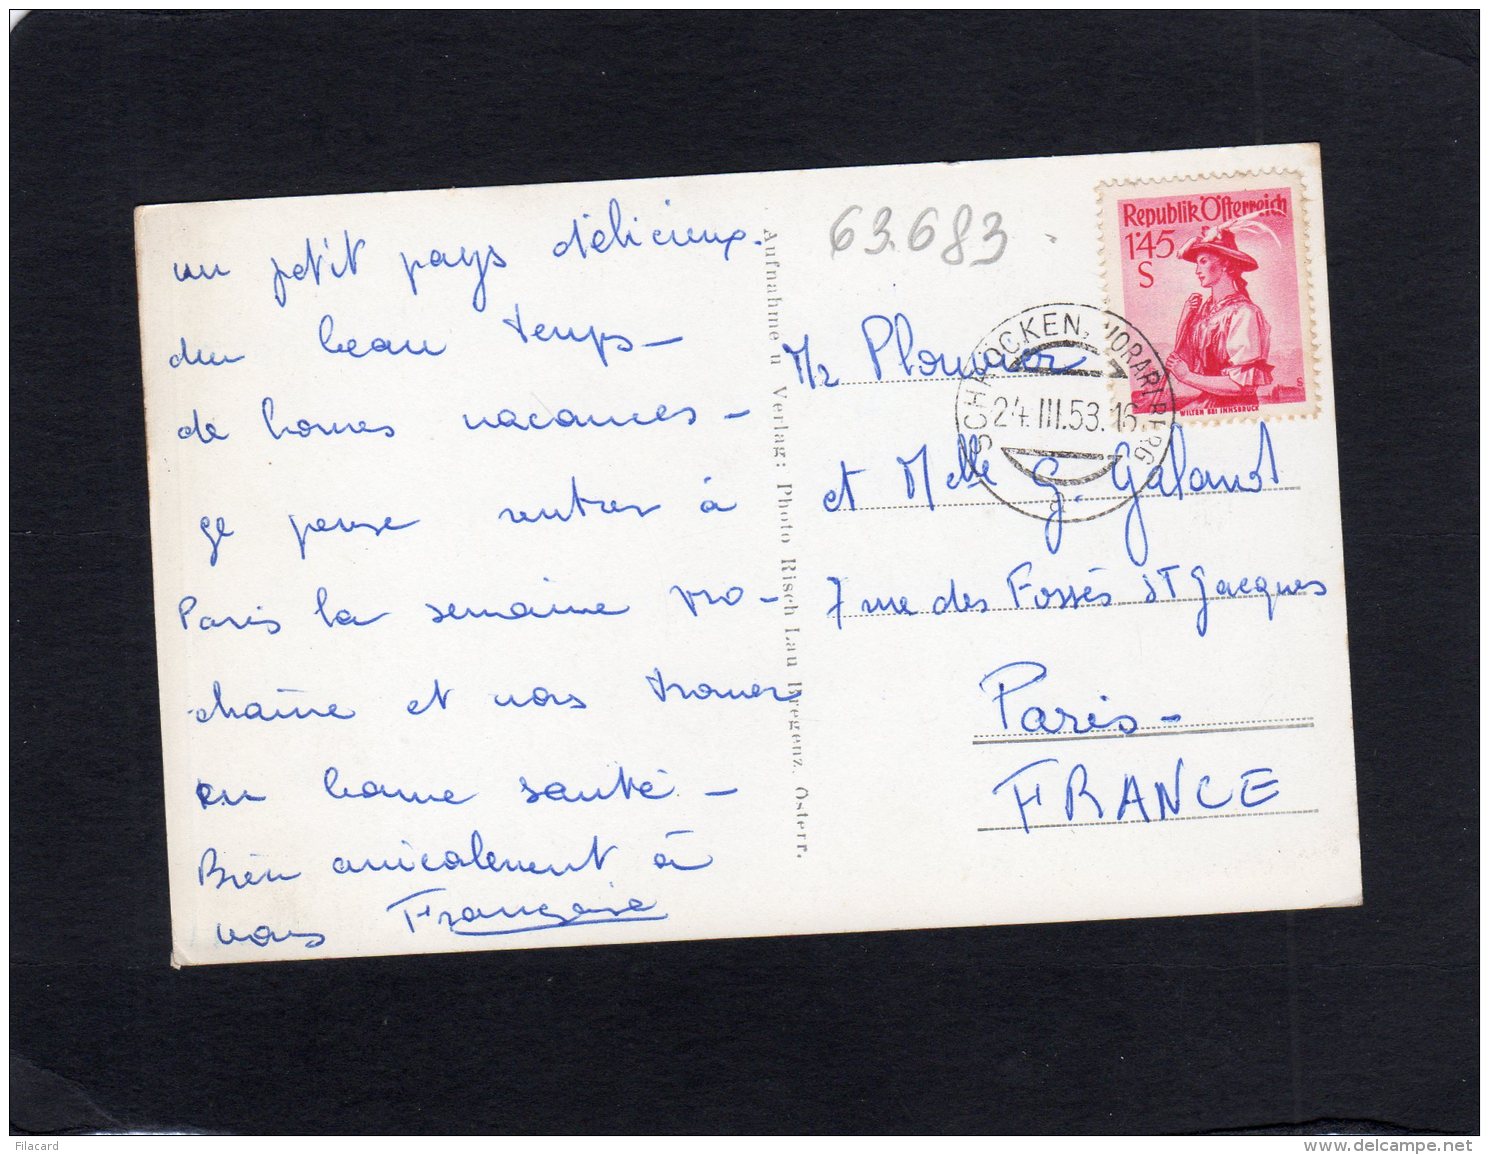 un petit pays délicieux.
du beau temps –
de bonnes vacances –
je pense rentrer à
Paris la semaine pro-
chaine et vous trouver
en bonne santé –
Bien amicalement à
vous Françoise
Aufnahme u Verlag: Photo Risch Lau Bregenz. Österr.
63.683
Republik Österreich
1'45
S
WILTEN BEI INNSBRUCK
SCHRÖCKEN, VORARLBERG
24.III.53.16
a
Mr Plouvier
et Melle G. Galand
7 rue des Fossés St Jacques
Paris –
FRANCE
Filacard
www.delcampe.net